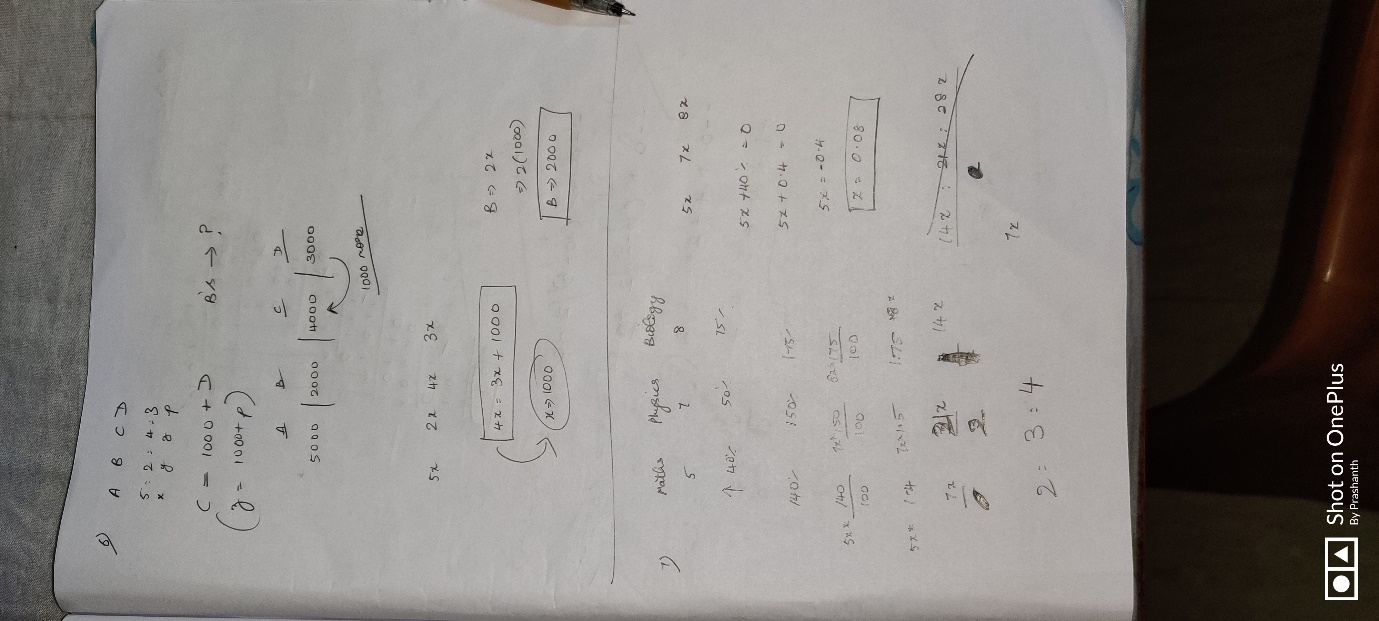 6)
A B C D
5 : 2 : 4 : 3
x y z p
C = 1000 + D
B's → ?
(z = 1000 + p)
A B C D
5000 | 2000 | 4000 | 3000
1000 more
5x 2x 4x 3x
4x = 3x + 1000
x ⇒ 1000
B ⇒ 2x
⇒ 2(1000)
B ⇒ 2000
7)
Maths Physics Biology
5 7 8
↑ 40% 50% 75%
140% 150% 175%
5x × 140/100 7x × 150/100 8x × 175/100
5x × 1.4 7x × 1.5 1.75
7x 21x/2 14x
2 : 3 : 4
5x 7x 8x
5x + 40% = 0
5x + 0.4 = 0
5x = -0.4
x = 0.08
14x : 21x : 28x
7x
Shot on OnePlus
By Prashanth